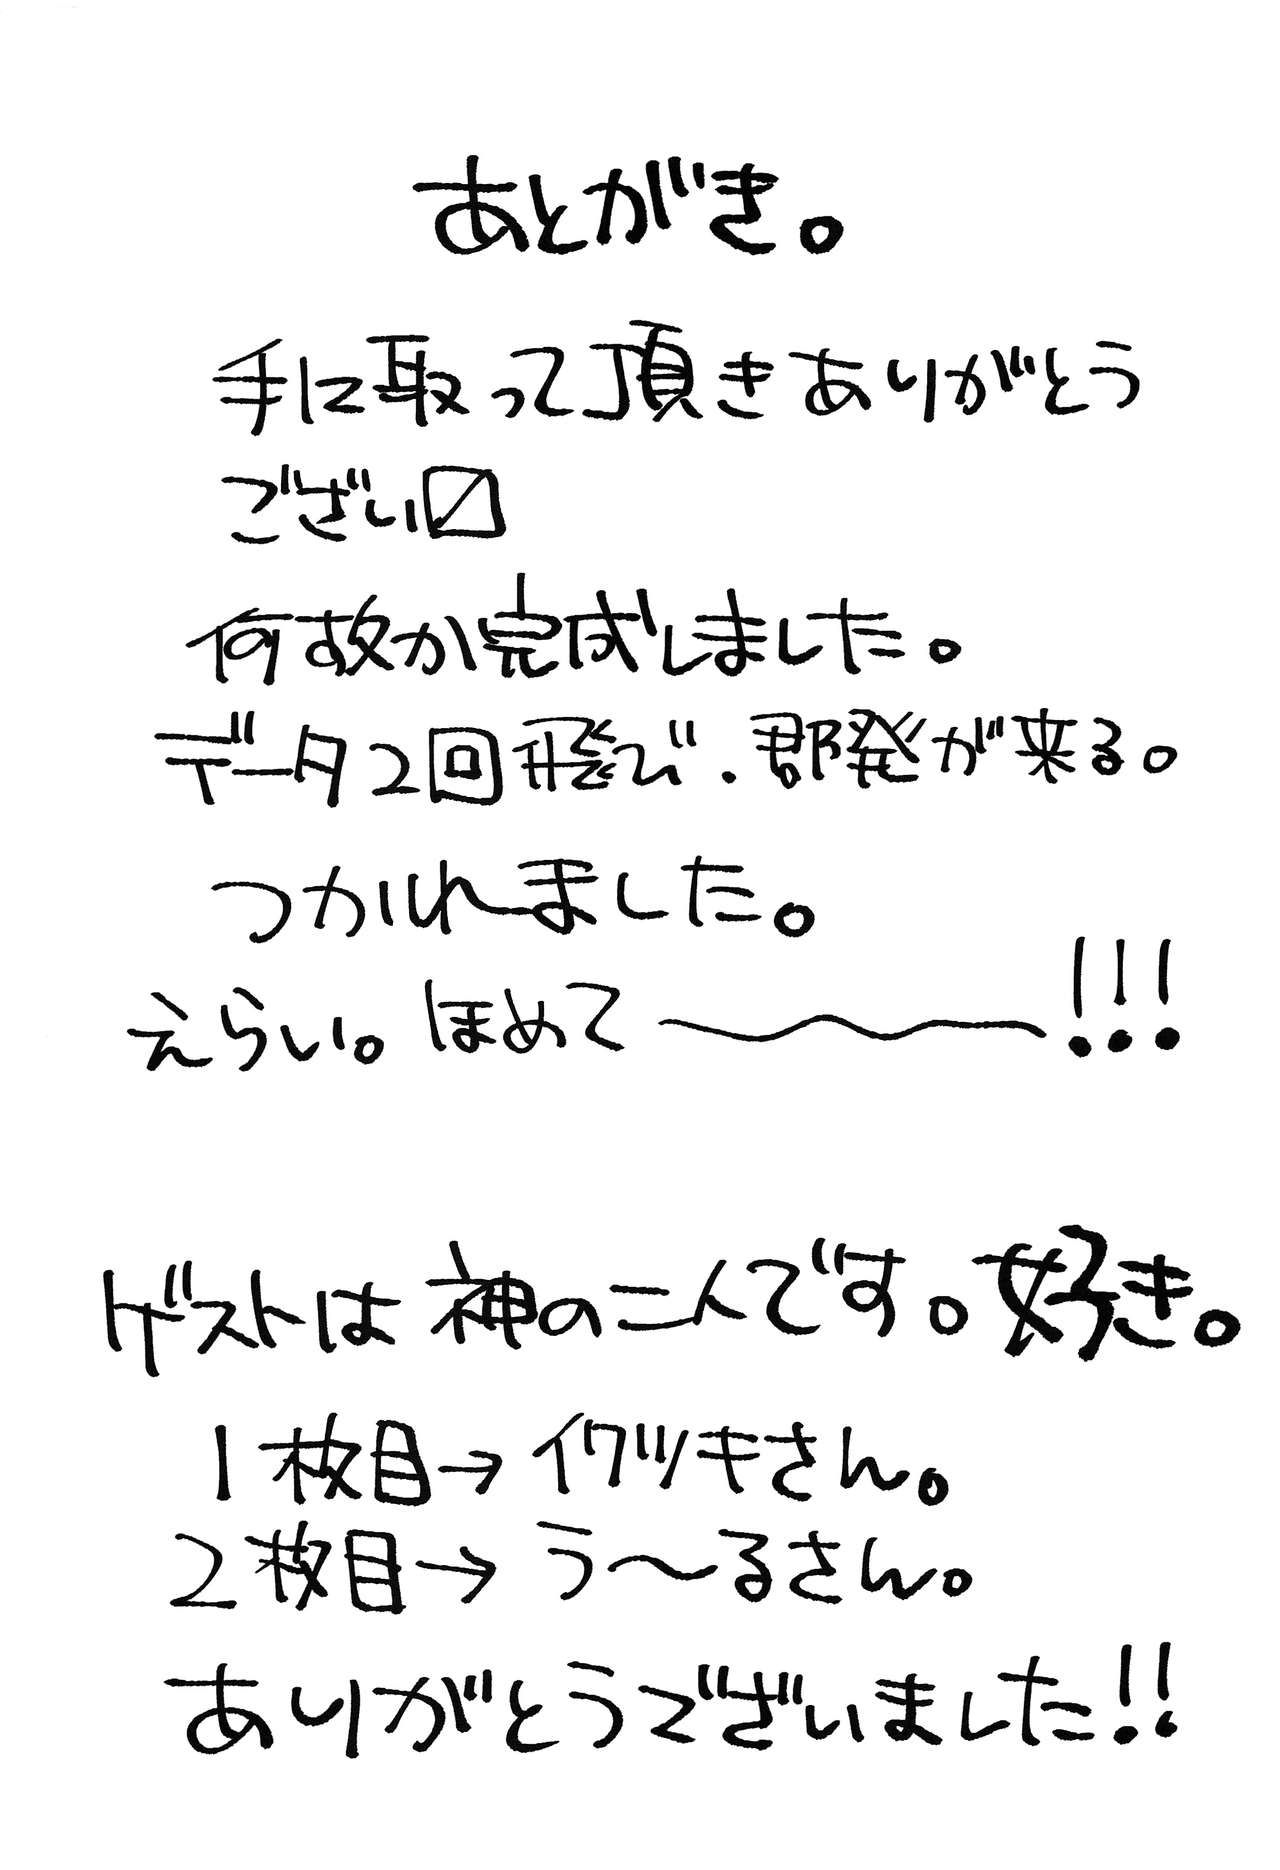 あとがき。
手に取って頂きありがとう
ござい〼
何故か完成しました。
データ2回飛び、郡発が来る。
つかれました。
えらい。ほめて〜!!!
ゲストは神の二人です。好き。
1枚目→イワツキさん。
2枚目→う〜るさん。
ありがとうございました!!